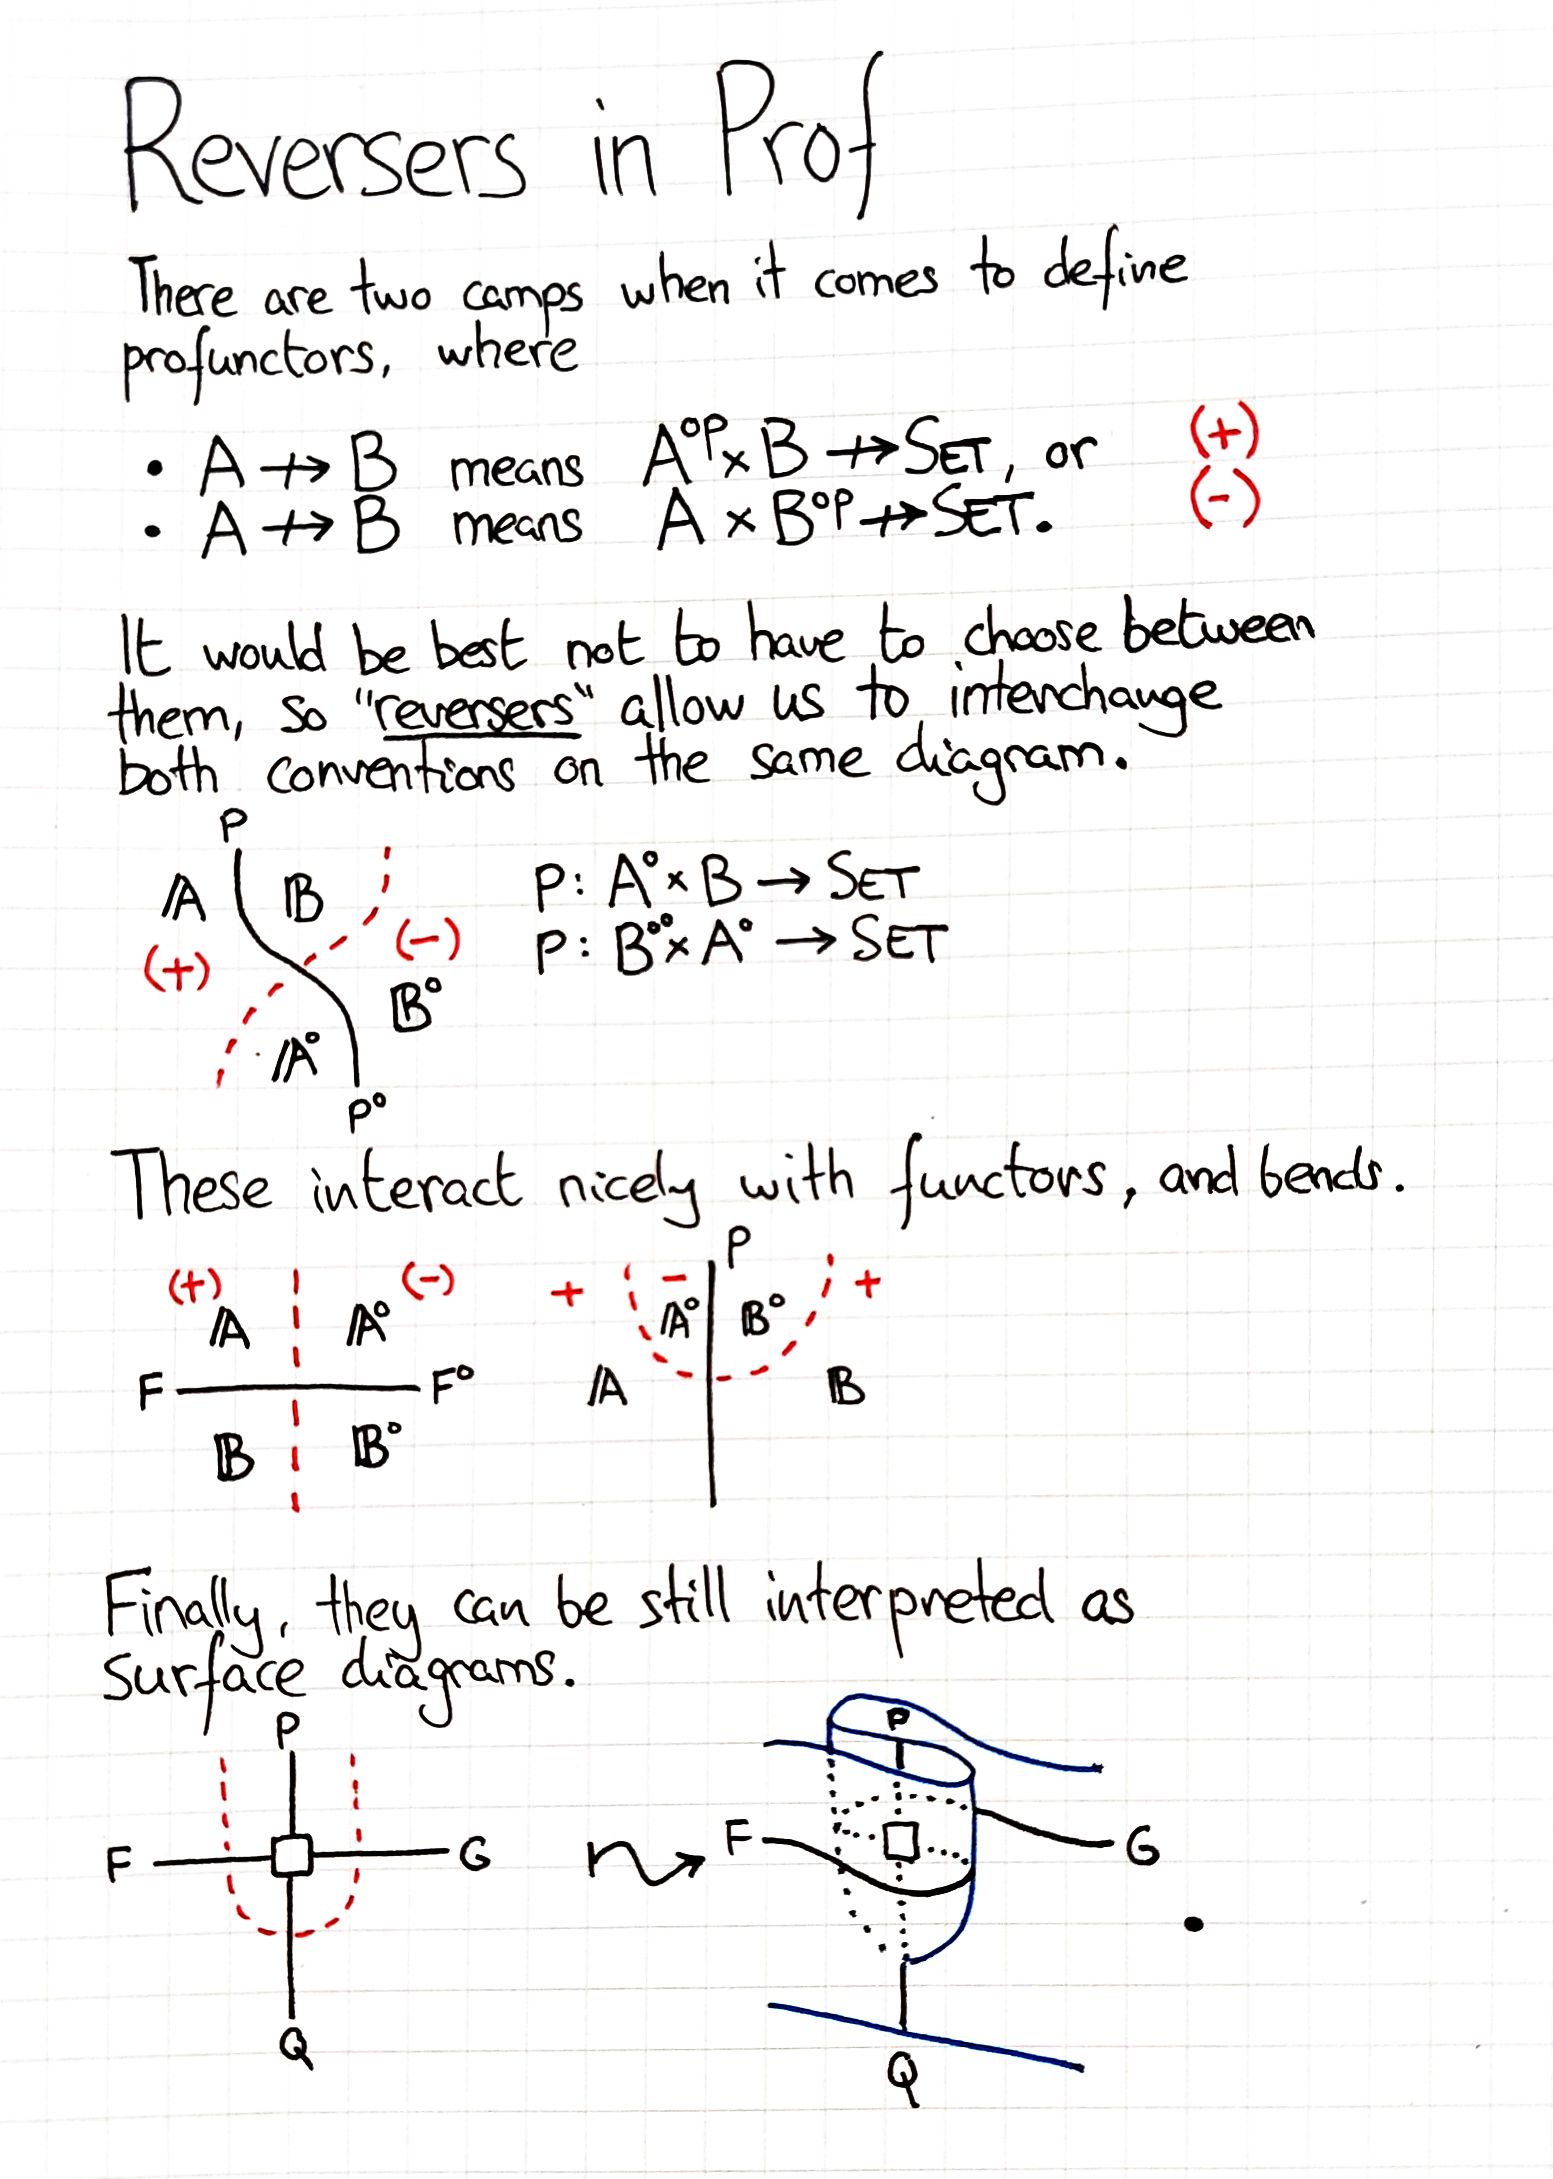 Reversers in Prof
There are two camps when it comes to define
profunctors, where
• A ⇸ B means A^op × B ⇸ SET, or (+)
• A ⇸ B means A × B^op ⇸ SET. (-)
It would be best not to have to choose between
them, so "reversers" allow us to interchange
both conventions on the same diagram.
P
𝔸 𝔹
P: A° × B → SET
(+) (-)
P: B°° × A° → SET
𝔹°
𝔸°
P°
These interact nicely with functors, and bends.
P
(+) (-)
+ - +
𝔸 𝔸°
𝔸° 𝔹°
F F°
𝔸 𝔹
𝔹 𝔹°
Finally, they can be still interpreted as
surface diagrams.
P
P
F G
F G
Q
Q